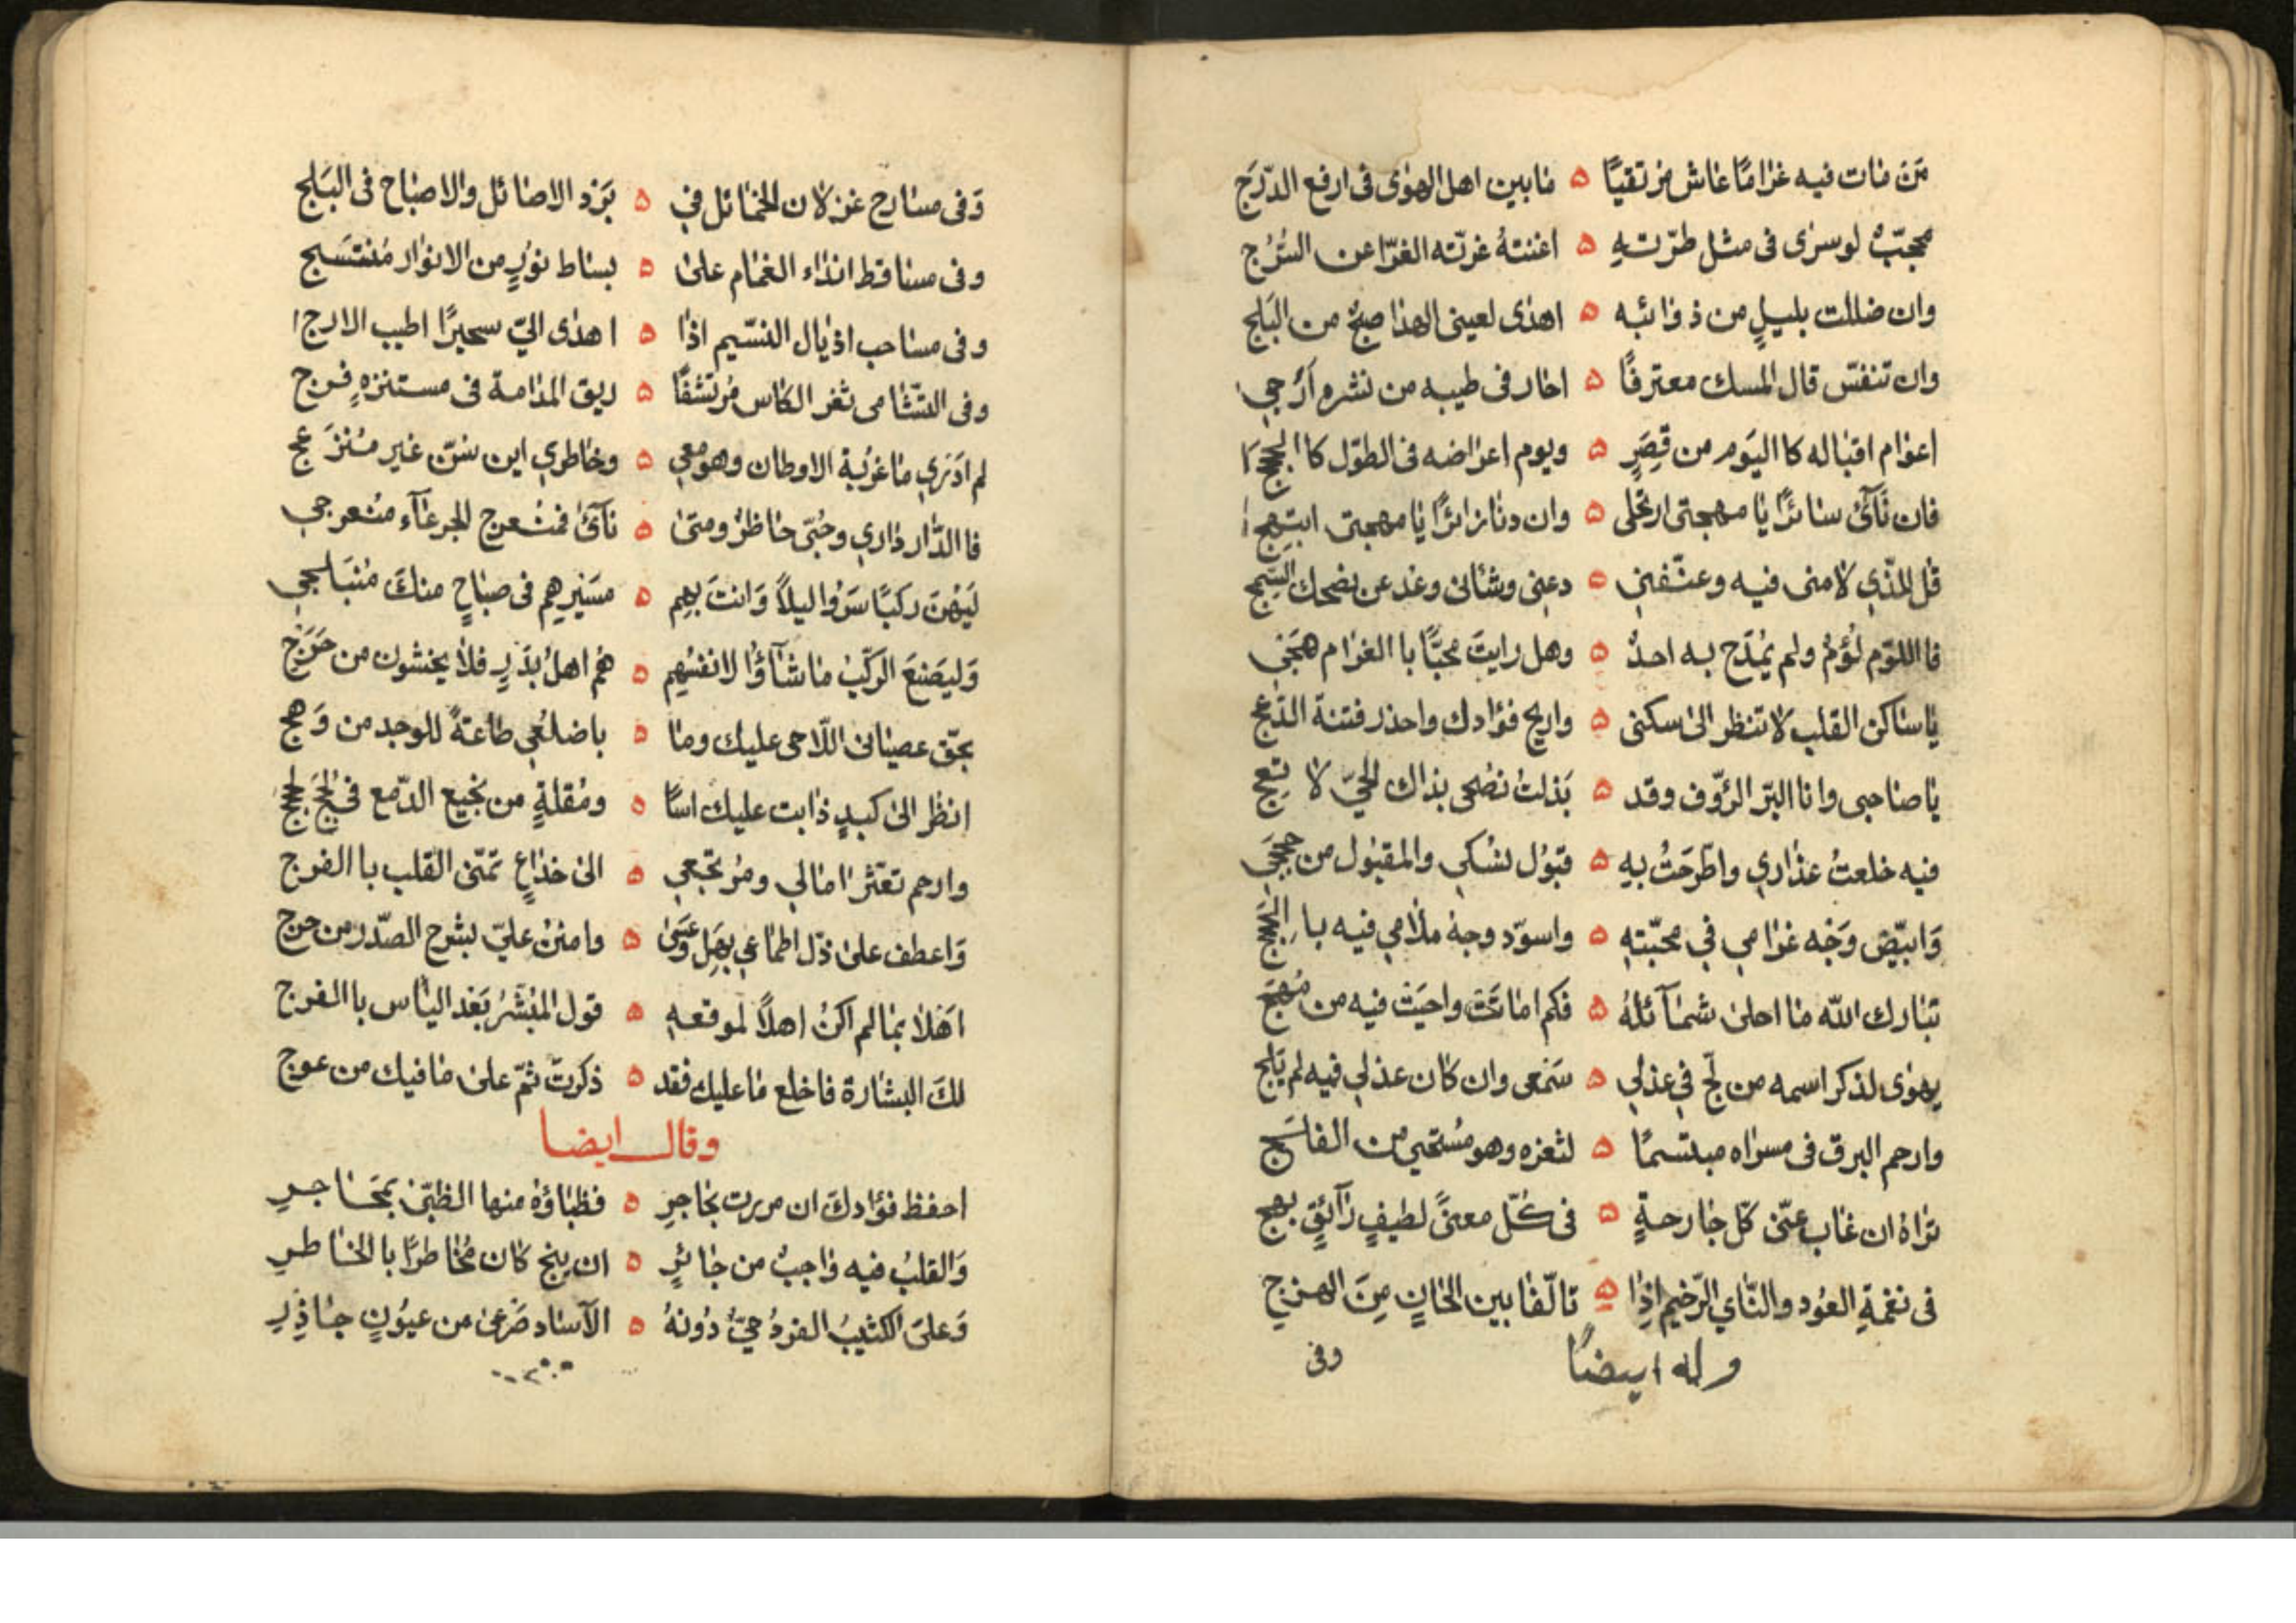 مَن مات فيه غرامًا عاش مرتقيًا ۵ مابين اهل الهوى فى ارفع الدّرَج
محجبٌ لو سرى فى مثل طرّتهِ ۵ اغنتهُ غرّته الغرّا عن السُرُج
وان ضللت بليلٍ من ذوائبه ۵ اهدى لعينى الهدا صبحٌ من البَلَج
وان تنفسّ قال المسك معترفًا ۵ لمن فى طيبه من نشره اَرَجي
اعوام اقباله كا اليَوم من قِصَرٍ ۵ ويوم اعراضه فى الطوّل كا الحجج
فان نَآئ سائرًا يا مهجتى ارتحلى ۵ وان دنا زائرًا يا مهجتى ابتهجِ
قل للذّي لامنى فيه وعنّفنى ۵ دعنى وشانى وعد عن نصحك السّمج
فا اللوّم لؤمٌ ولم يُمدَح به احدٌ ۵ وهل رايتَ محبًّا با الغرام هُجى
يا ساكن القلب لا تنظر الى سكنى ۵ واربح فؤادك واحذر فتنة الدّعج
يا صاحبى وانا البّر الرؤّف وقد ۵ بَذلتُ نصُحى بذاك الحيّ لا تعِج
فيه خلعتُ عذاري واطّرحَتُ بهِ ۵ قبَوُل نسُكي والمقبول من حججى
وَابيّض وَجْه غرامي في محبّتهِ ۵ واسوّد وجهُ ملامي فيه با الحجج
تبارك الله ما احلى شمآئلهُ ۵ فكم اماتَتْ واحيَتْ فيه من مُهَج
يهوى لذكر اسمه من لجّ في عذلي ۵ سَمعى وان كان عذلي فيه لم يَلج
وارحم البرق فى مسراه مبتسمًا ۵ لثغره وهو مُستحيي من الفلَج
تراهُ ان غاب عنّى كلّ جارحةٍ ۵ فى كلّ معنىً لطيفٍ رآئقٍ بهج
فى نغمةِ العوُد والنّاي الرّخيم اذِا ۵ تالّفا بين الحانٍ مِنَ الهزج
وله ايضًا وفى
وَفى مسارح غزلان الخمائل في ۵ بَرْد الاصائل والاصباح فى البَلج
وفى مساقط انداء الغمام على ۵ بساط نوُرٍ من الانوار مُنتسَج
وفى مساحب اذيال النسّيم اذا ۵ اهدى اليّ سحيرًا اطيب الارج
وفى التثامى ثغر الكاس مُرتشفًا ۵ ريق المدامة فى مستنزهٍ فرج
لم ادَري ما غرُبة الاوطان وهو معي ۵ وخاطري اين سرّت غير مُنزَعج
فا الدَّار داري وحُبّى حاظرٌ ومتى ۵ نآئ فمنُعرج الجرعآء منُعرجي
ليَهْن ركبًا سَرَوْا ليلاً وَانتَ بهِم ۵ مسَيْرهِم فى صباحٍ منكَ منُبَلجي
وَليصَنعَ الركّبُ ما شآؤا لانفسُهِم ۵ هُم اهلُ بَدْرٍ فلا يخشون من حَرَج
بحّق عصيانى اللّاحى عليك وما ۵ باضلعُي طاعةً للوجد من وَهج
انظُر الى كبدٍ ذابت عليك اسًا ۵ ومُقلةٍ من نجيع الدّمع فى لجُج
وارحم تعثر امالي ومُرتجعي ۵ الى خداعِ تمَنّى القلب با الفرج
وَاعطف على ذّل اطماعي بهَل وَعَسَىٰ ۵ وامننْ عليّ بشرح الصّدر من حرج
اهَلا بما لم اكنُ اهلاً لموقعهِ ۵ قول المبُشّرُ بَعْد الياس با الفرج
لكَ البشارة فاخلع ما عليك فقد ۵ ذكرتَ ثمّ على ما فيك من عوج
وقال ايضا
احفظ فؤادكَ ان مررت بحاجرِ ۵ فظباؤه منها الظبّىٰ بمَحَاجرِ
وَالقلبُ فيه واجبٌ من جائزٍ ۵ ان ينج كان مُخاطرًا با الخاطرِ
وَعلى الكثيبُ الفردُ حيٌّ دُونهُ ۵ الآساد صَرْعىٰ من عيوُنِ جاذِرِ